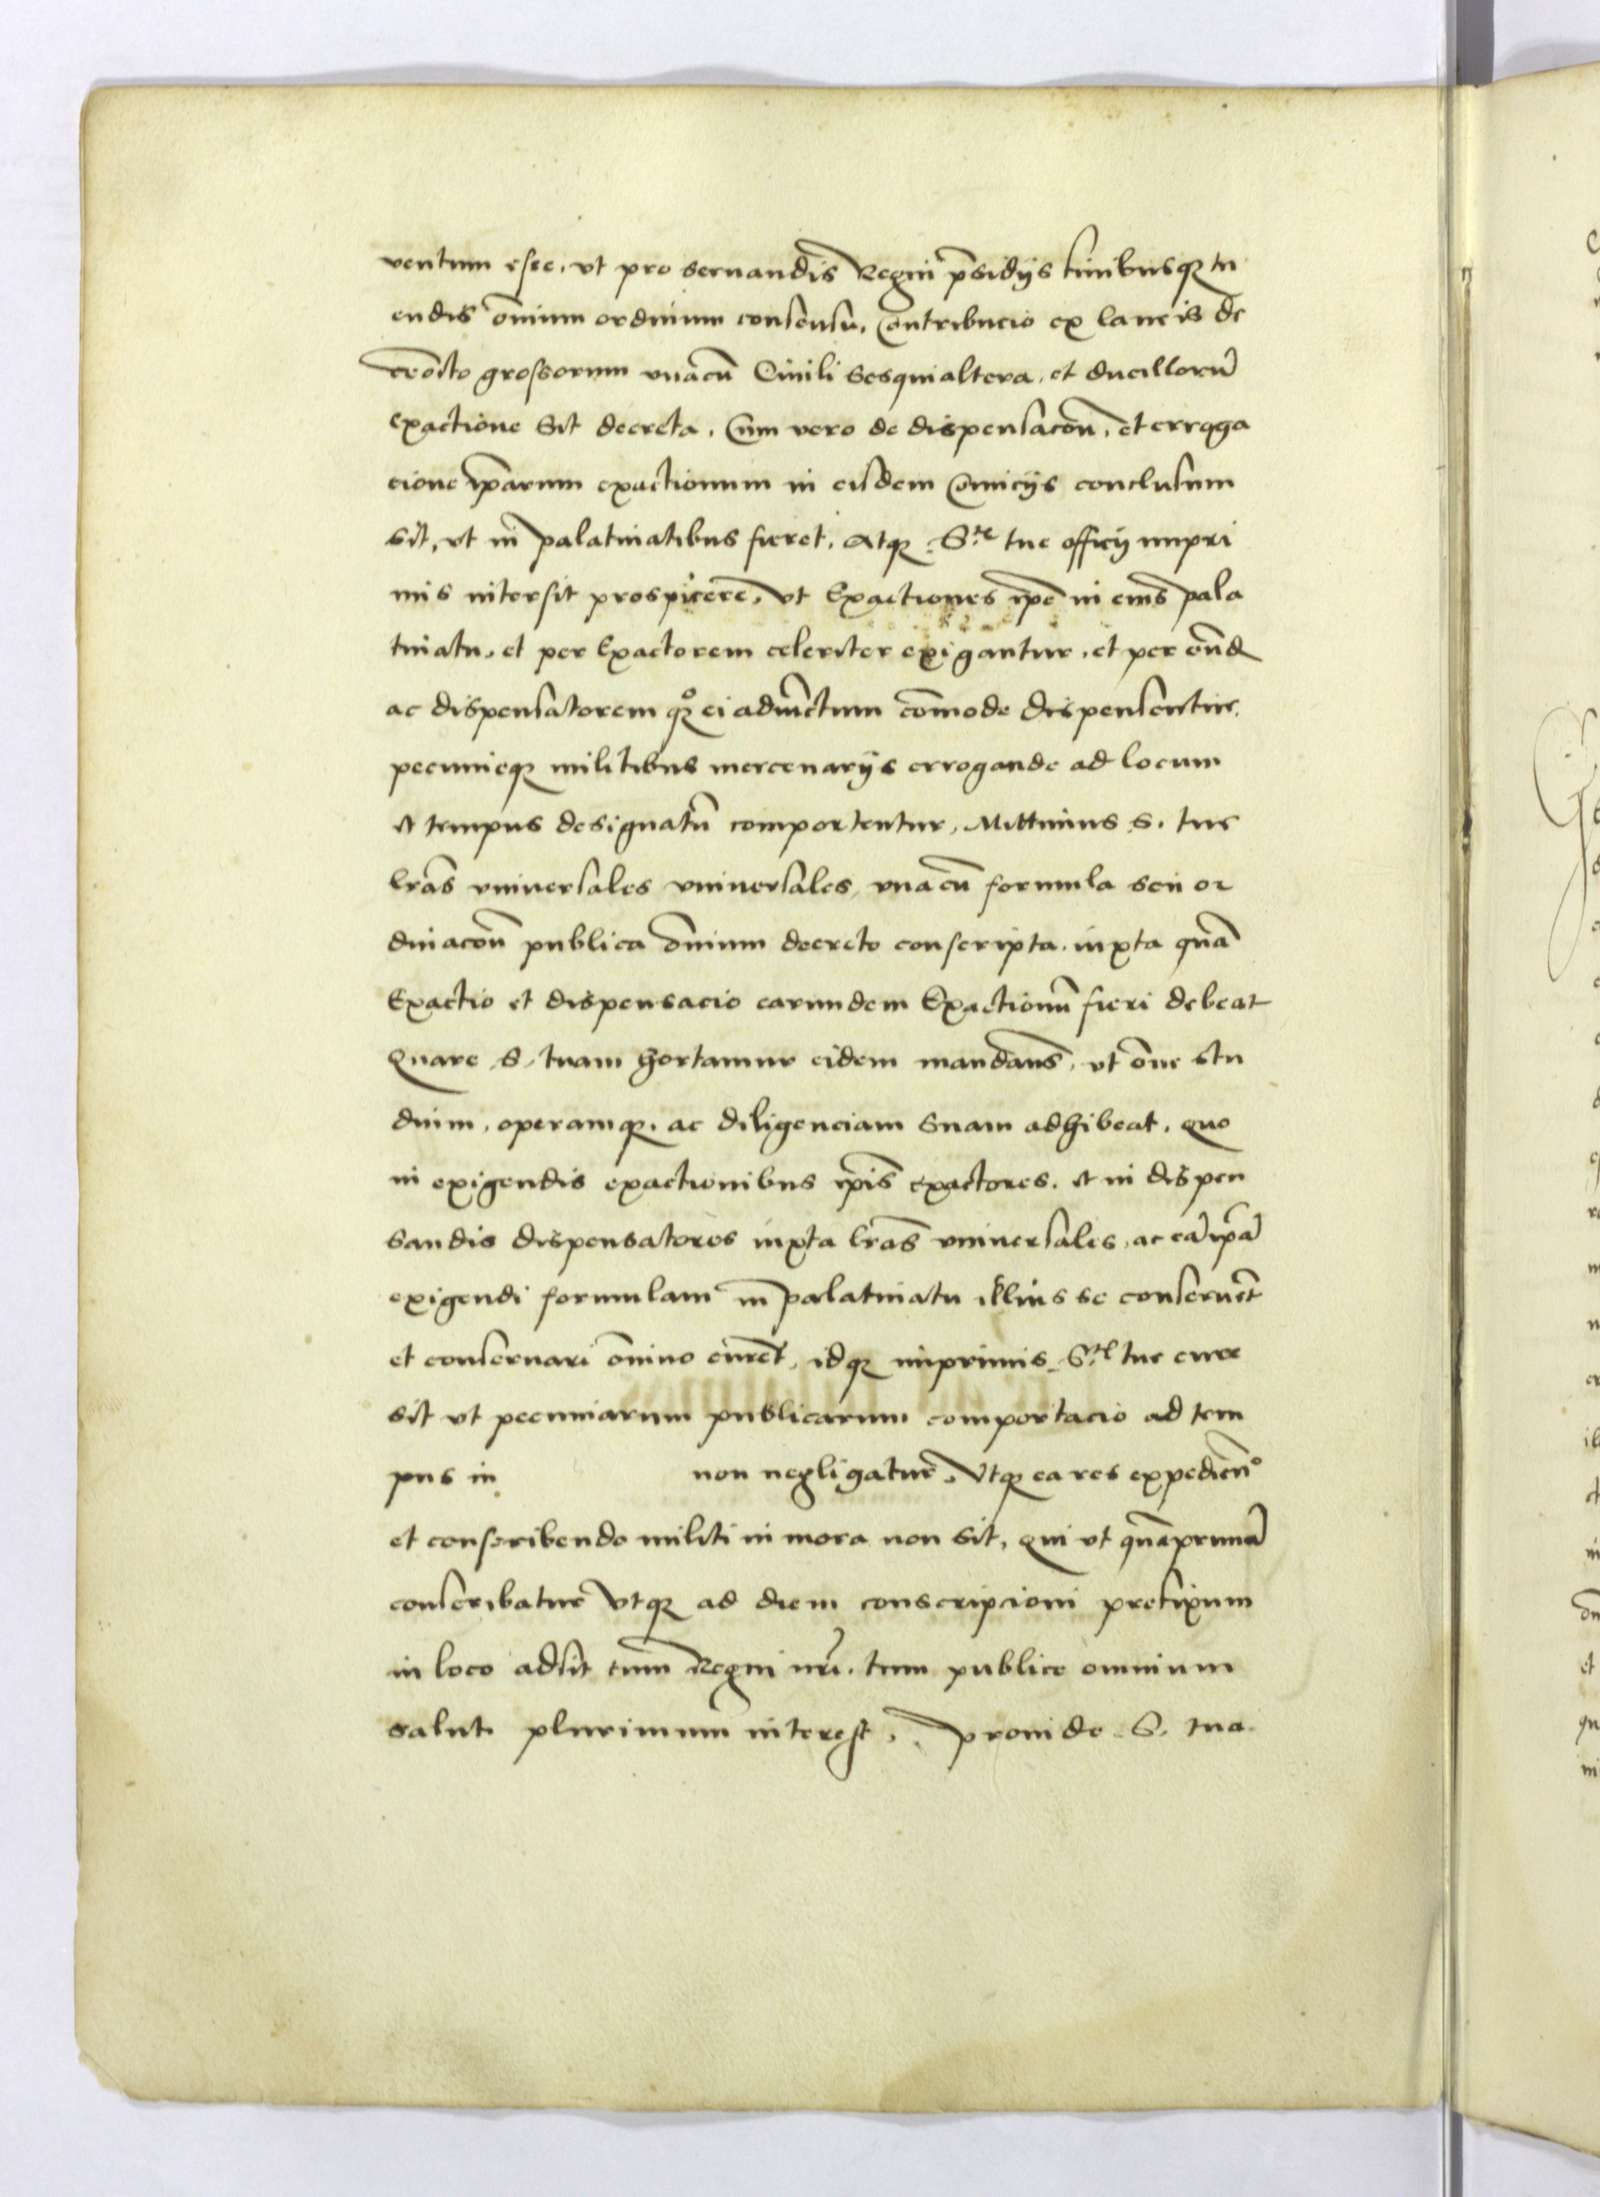 ventum esse, vt pro seruandis Regni p̄sidijs finibusq₃ tu
endis om̄ium ordinum consensu, Contribucio ex laneis de
cē octo grossorum vnacū Ciuili Sesquialtera, et ducillorū
exactione Sit decreta, Cum vero de dispensacōn, et erroga
cione ip̄arum exactionum in eisdem Comicijs conclusum
sit, vt in palatinatibus fieret, Atq₃ S.te tue officij impri
mis intersit prospicere, vt Exactiones ip̄e in eius pala
tinatu, et per Exactorem celeriter exigantur, et per eūd
ac dispensatorem q₃ ei adiūctum com̄ode dispensentur,
pecunieq₃ militibus mercenarijs errogande ad locum
et tempus designatū comportentur, Mittimus S. tue
lr̄as vniuersales vniuersales, vnacū formula seu or
dinacōn publica om̄nium decreto conscripta, iuxta quā
Exactio et dispensacio earundem Exactionū fieri debeat
Quare S. tuam hortamur eidem mandans, vt om̄e stu
dium, operamq₃, ac diligenciam suam adhibeat, quo
in exigendis exactionibus ip̄is exactores, et in dispen
sandis dispensatores iuxta lr̄as vniuersales, ac eā ip̄ā
exigendi formulam in palatinatu illius se conseruēt
et conseruari om̄ino curēt, idq₃ imprimis S.ti tue cure
sit vt pecuniarum publicarum comportacio ad tem
pus in non negligatur, Vtq₃ ea res expediēn°
et conscribendo militi in mora non sit, qui vt quāprimū
conscribatur Vtq₃ ad diem conscripcioni prefixum
in loco adsit tum Regni nr̄i, tum publice omnium
saluti plurimum interest, Prouide S. tua